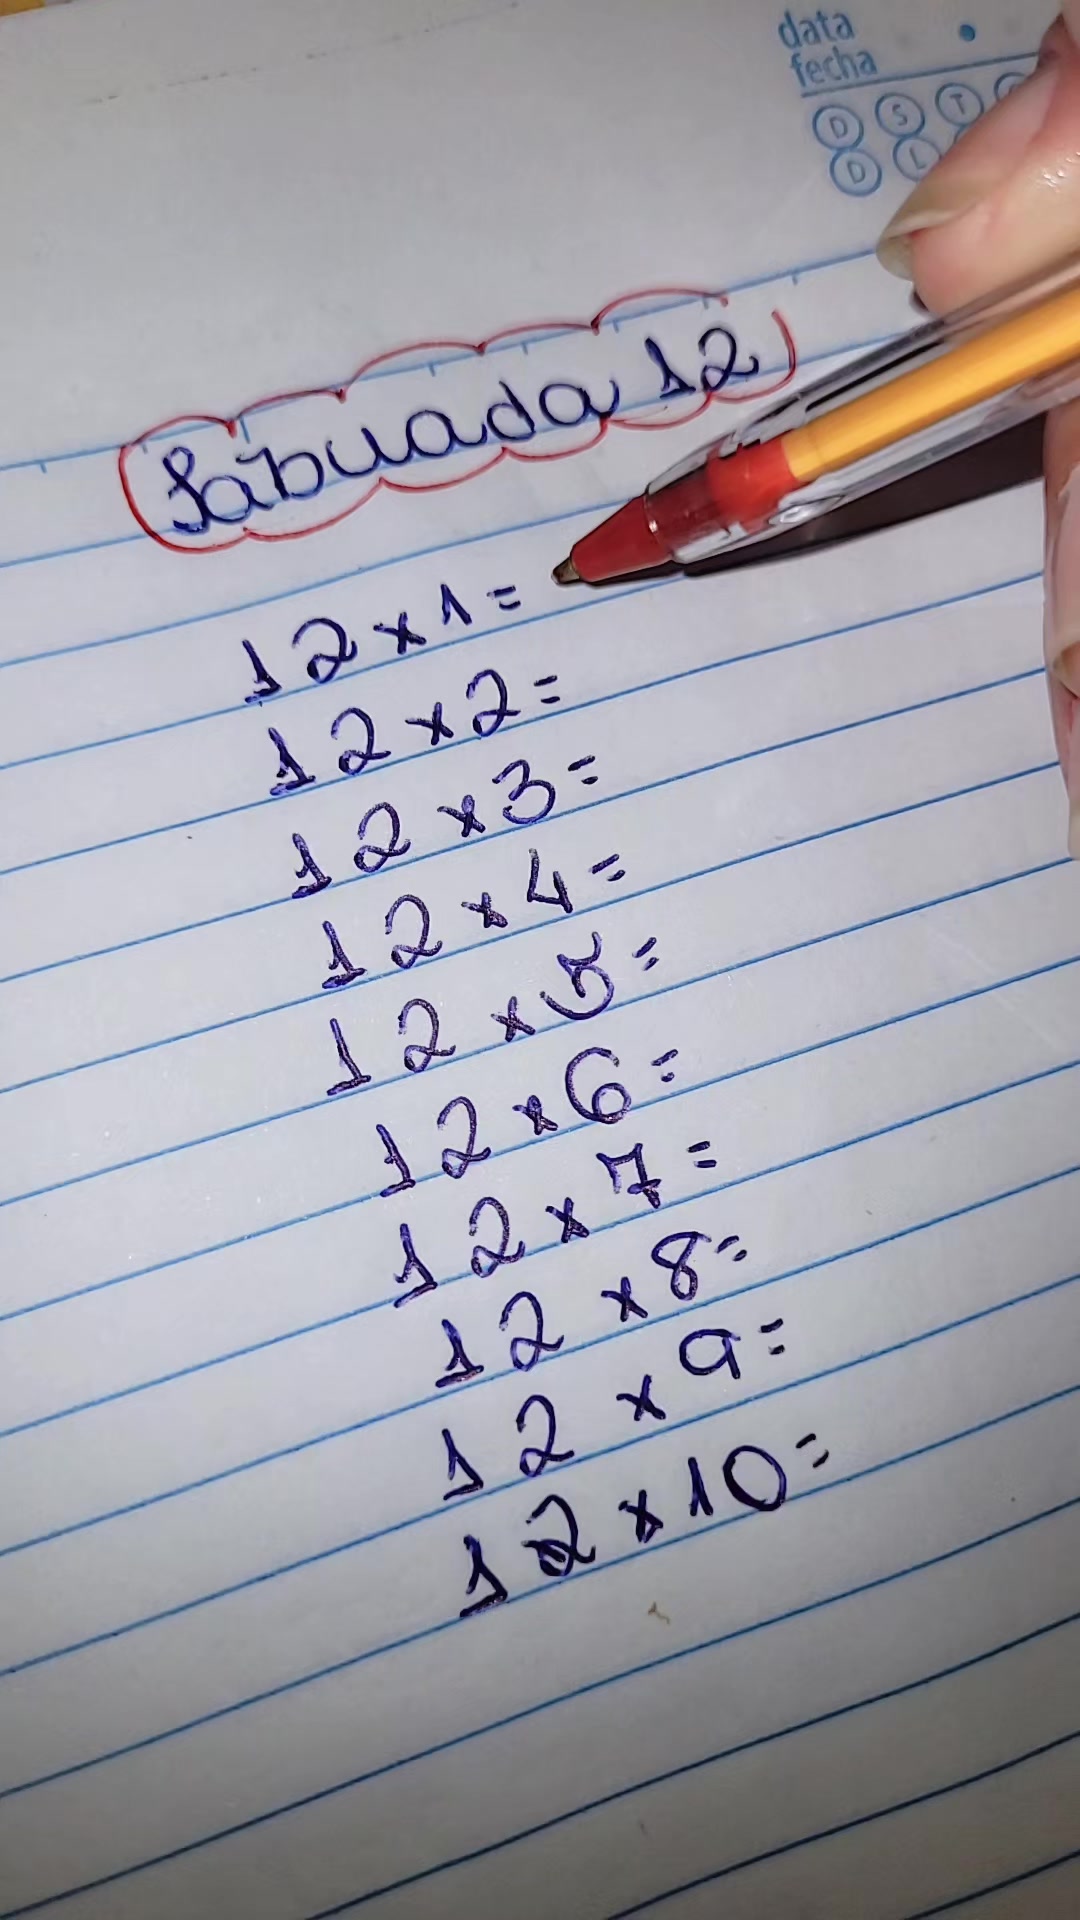 data
fecha
D S T
D L
Tabuada 12
12 x 1 =
12 x 2 =
12 x 3 =
12 x 4 =
12 x 5 =
12 x 6 =
12 x 7 =
12 x 8 =
12 x 9 =
12 x 10 =